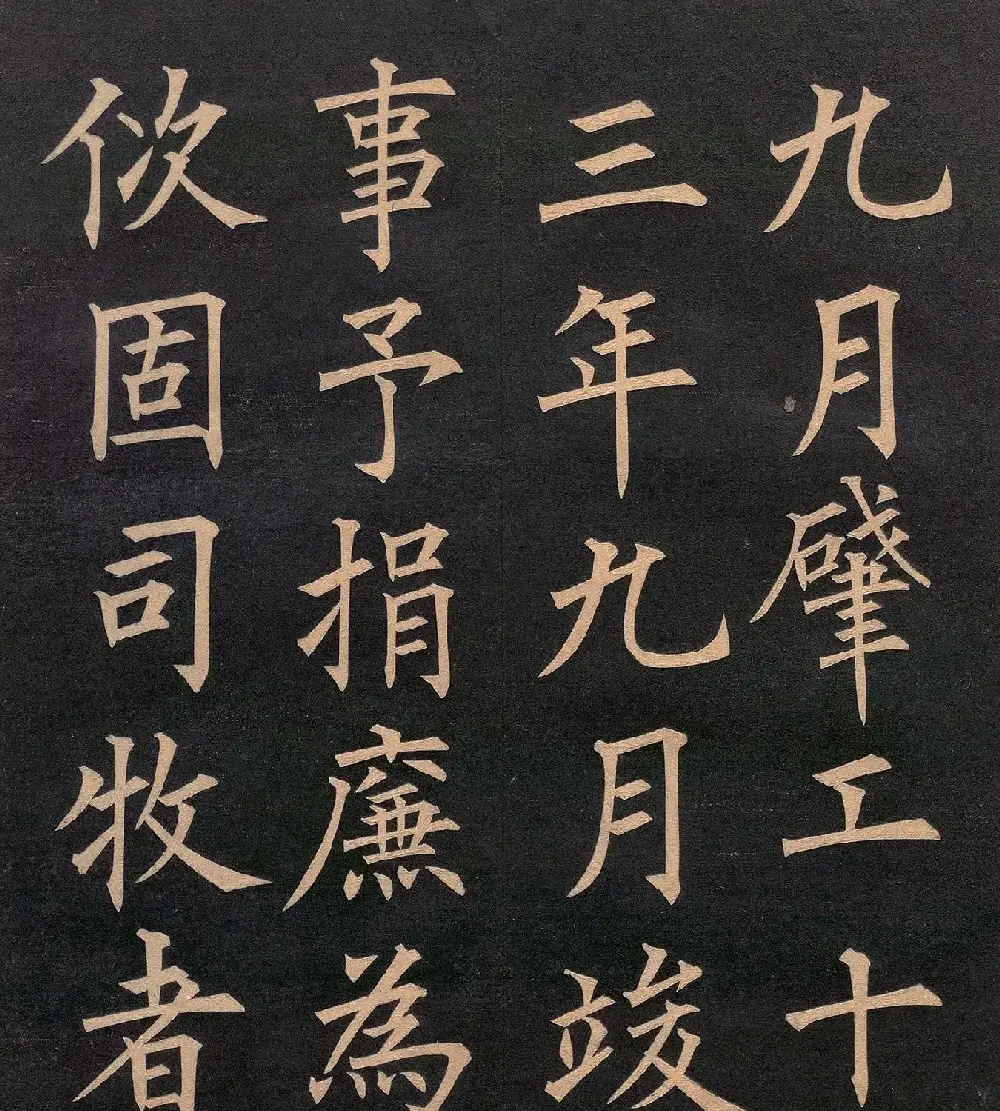 九月肇工十
三年九月竣
事予捐廉為
佽固司牧者